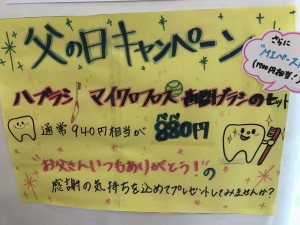 父の日キャンペーン
さらに
"MIペースト
(1700円相当!)
ハブラシ マイクロフロス 歯間ブラシのセット
通常940円相当が 880円
"お父さんいつもありがとう!"の
感謝の気持ちを込めてプレゼントしてみませんか?